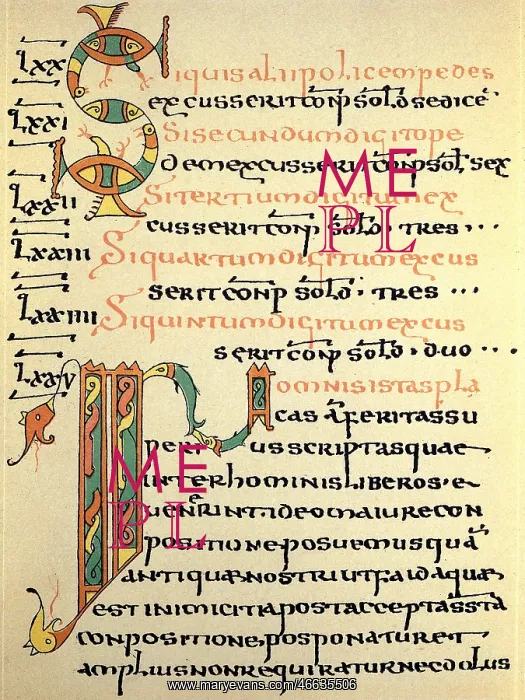 LXX Siquisaliipolicempedes
excusseritconp sol sedicē
LXXI Sisecundumdigitope
demexcusserit conp sol sex
LXXII Sitertiumdigitum ex
cusserit conp sold tres ...
LXXIII Siquartumdigitumexcus
serit conp sold tres ...
LXXIIII Siquintumdigitumexcus
serit conp sold duo ...
LXXV omnisistaspla
cas feritassu
perius scriptasquae
interhominisliberos e
uenerint ideomaiurecon
positioneposuemusquā
antiquaenostri utfaidaquae
est inimicitiapostacceptassta
conpositione posponaturet
ampliusnonrequiraturnecdolus
ME
PL
ME
PL
www.maryevans.com/46635506